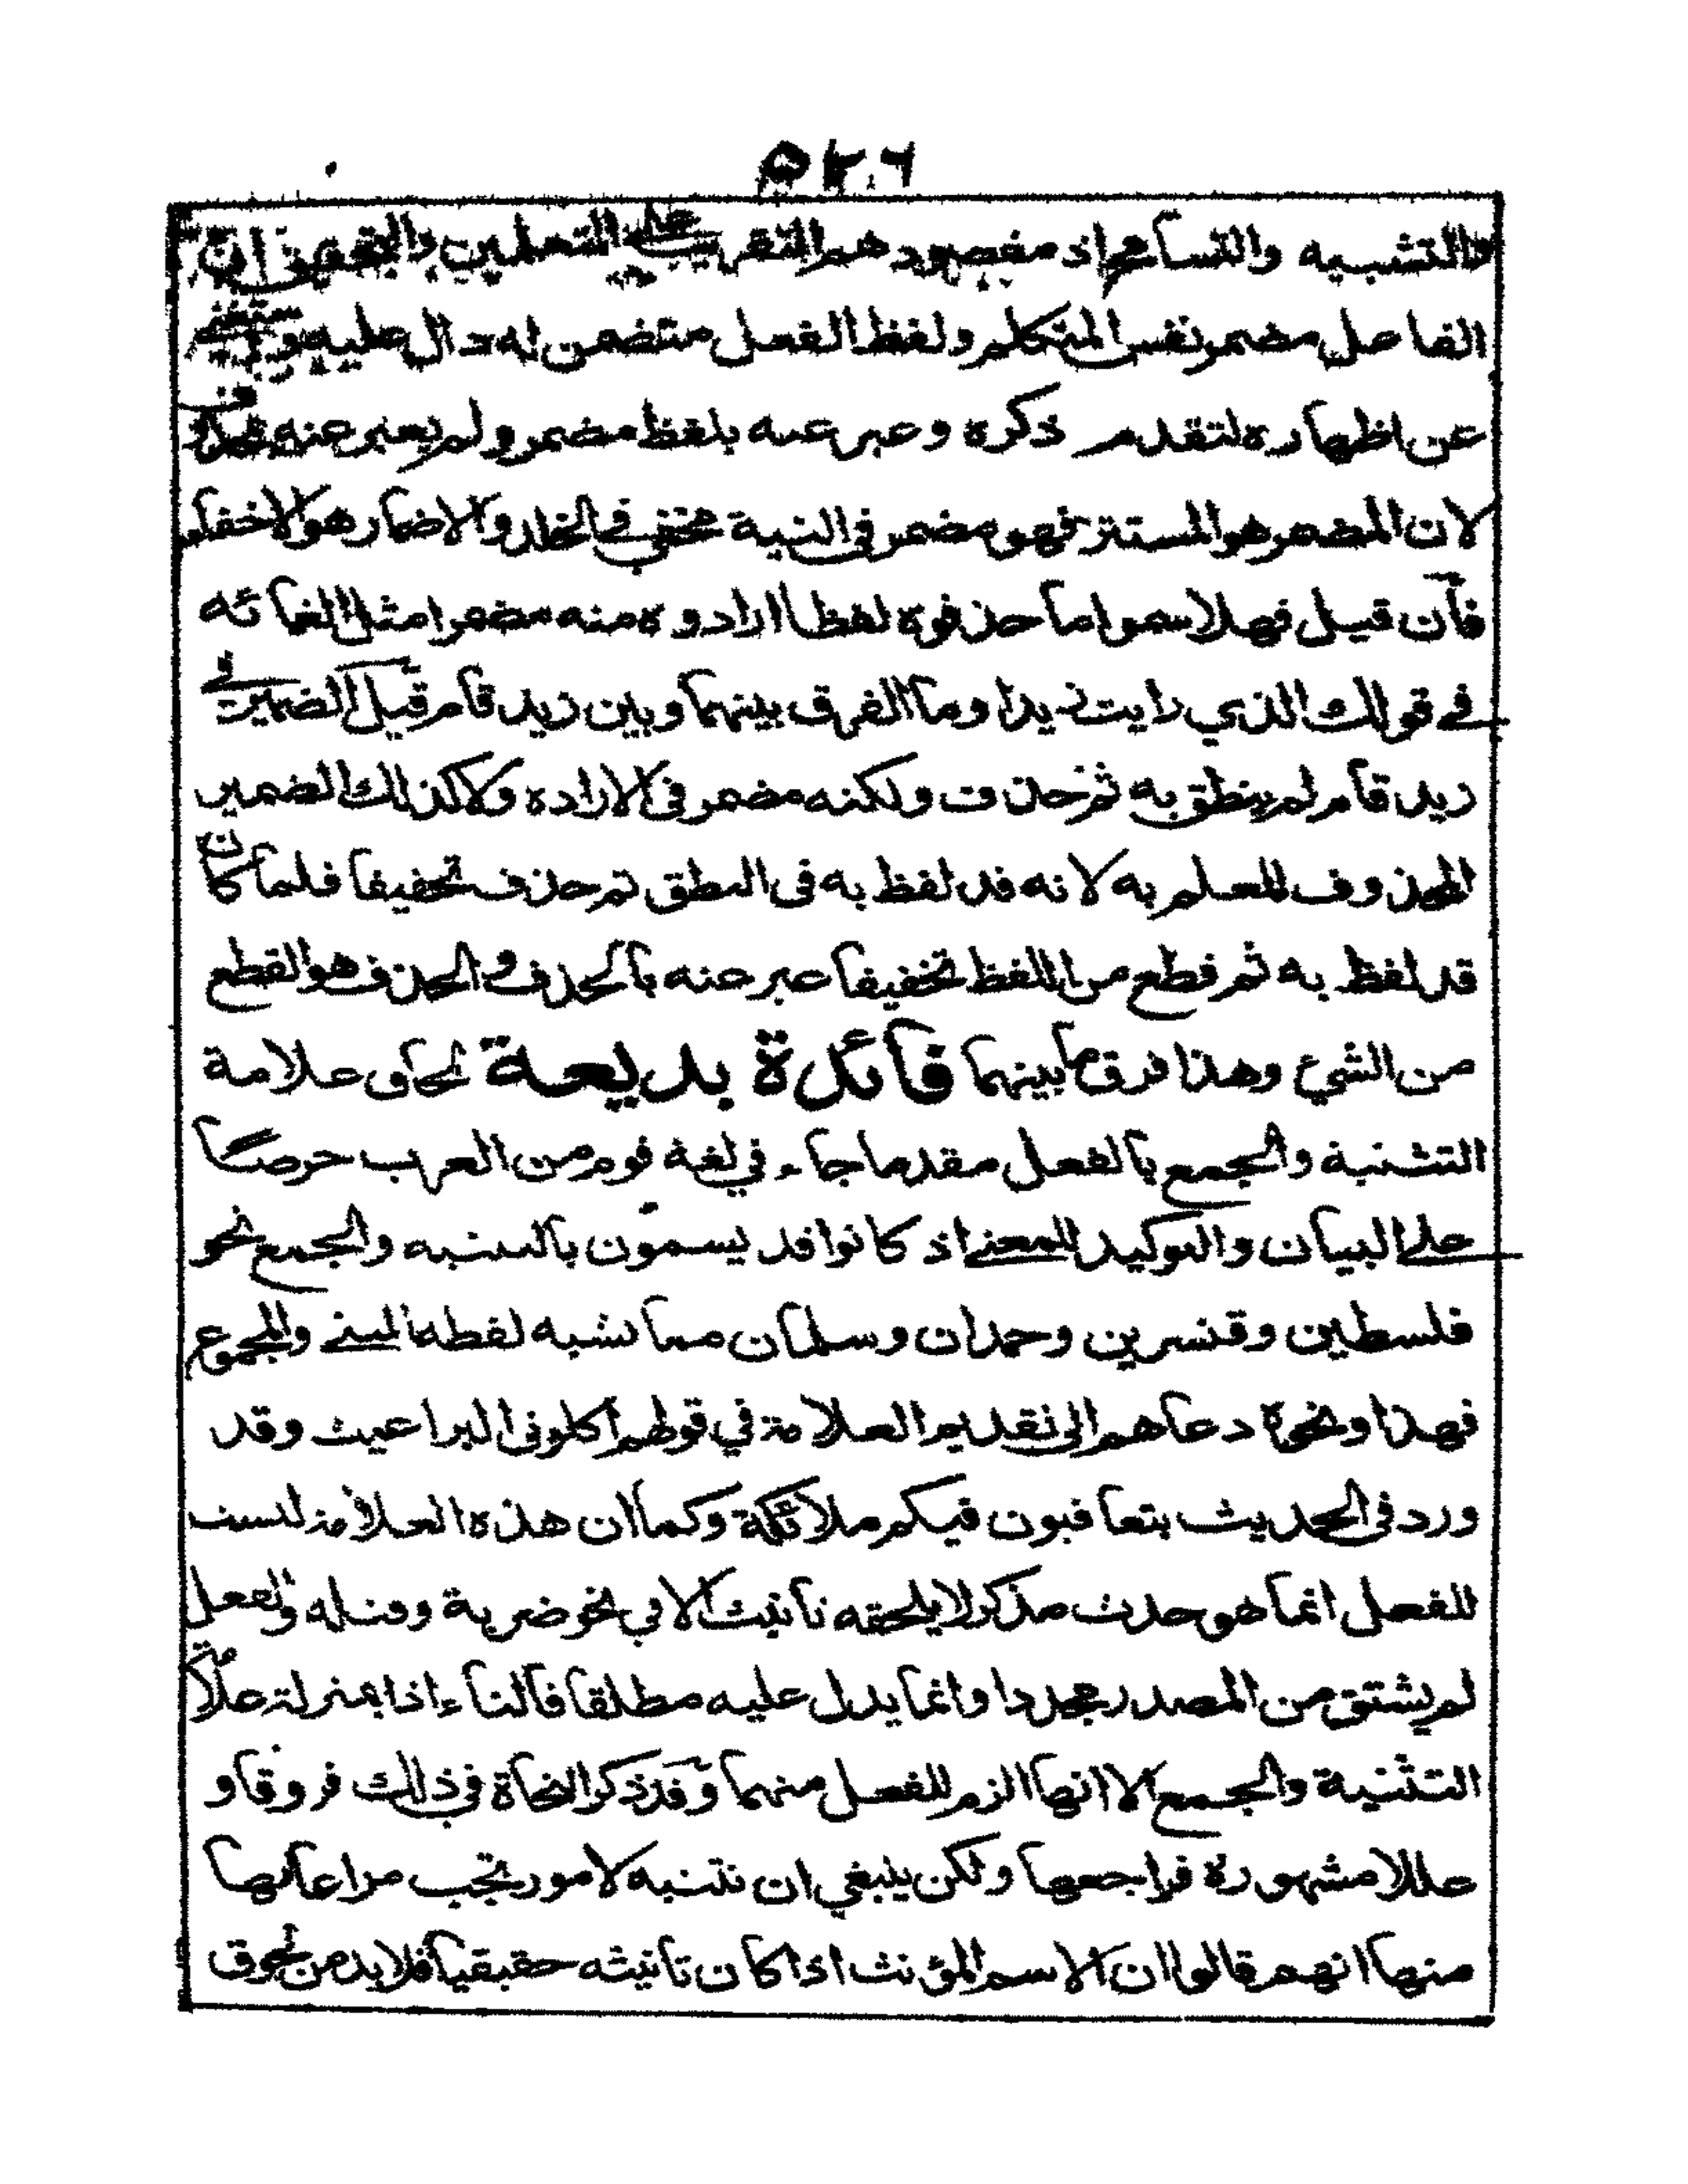 ٥٢٦
والتشبيه والتسامح اذ مقصودهم التقريب على المتعلمين والتحقيق ان
الفاعل مضمر نفس المتكلم ولفظ الفعل متضمن له دال عليه واستغنى
عن اظهاره لتقدم ذكره وعبر عنه بلفظ مضمر ولم يعبر عنه بمحذوف
لان المضمر هو المستتر فهو مضمر في النية مخفي في الخلد والاضمار هو الاخفاء
فان قيل فهلا سموا ما حذفوه لفظا وارادوه منه مضمرا مثل العائد
في قولك الذي رايت زيدا وما الفرق بينهما وبين زيد قام قيل الضمير في
زيد قام لم ينطق به ثم حذف ولكنه مضمر في الارادة ولا كذلك الضمير
المحذوف للعلم به لانه قد لفظ به في النطق ثم حذف تخفيفا فلما كان
قد لفظ به ثم قطع من اللفظ تخفيفا عبر عنه بالحذف والحذف هو القطع
من الشيء وهذا فرق ما بينهما فائدة بديعة لحاق علامة
التثنية والجمع بالفعل مقدما جاء في لغة قوم من العرب حرصا
على البيان والتوكيد للمعنى اذ كانوا قد يسمون بالتثنية والجمع نحو
فلسطين وقنسرين وحمدان وسلمان مما يشبه لفظه المبنى والمجموع
فهذا ونحوه دعاهم الى تقديم العلامة في قولهم اكلونى البراغيث وقد
ورد في الحديث يتعاقبون فيكم ملائكة وكما ان هذه العلامة ليست
للفعل انما هو حدث مذكر لا يلحقه تانيث الا في نحو ضربة وقتله والفعل
لم يشتق من المصدر محددا وانما يدل عليه مطلقا فالتاء اذا بمنزلة علامة
التثنية والجمع الا انها الزم للفعل منهما وقد ذكر النحاة في ذلك فروقا و
عللا مشهورة فراجعها ولكن ينبغي ان نتنبه لامور تجب مراعاتها
منها انهم قالوا ان الاسم المؤنث اذا كان تانيثه حقيقيا فلا بد من لحوق